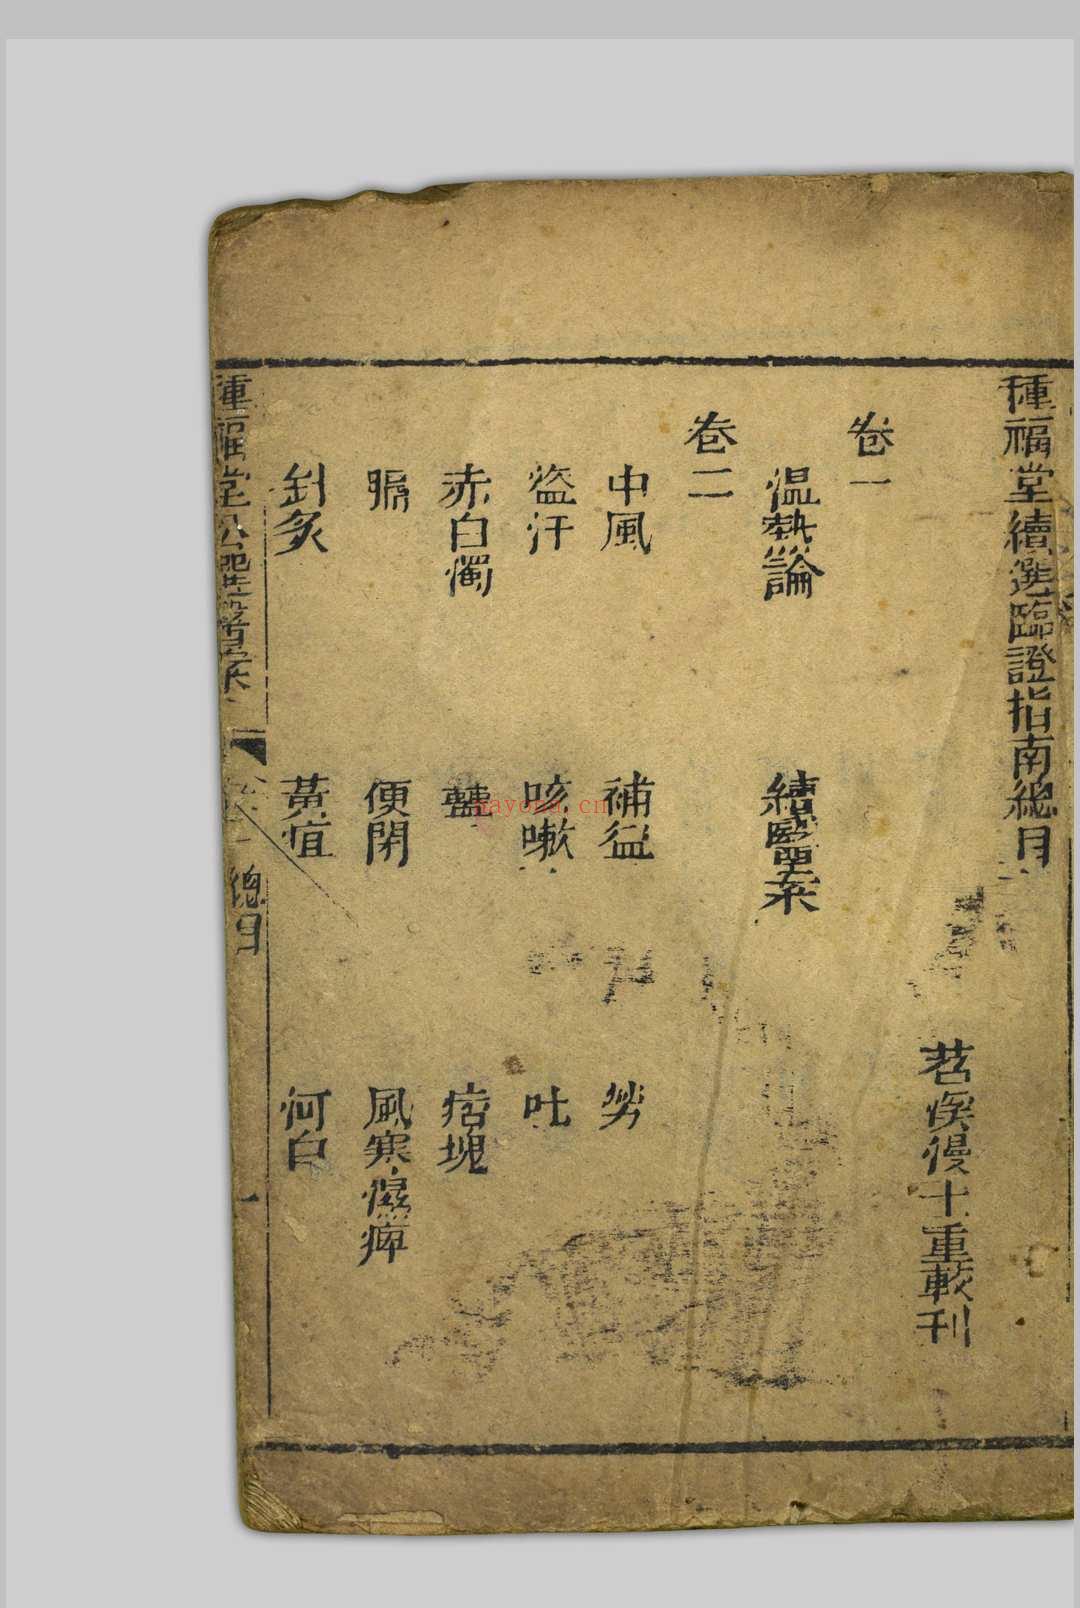 種福堂續選臨證指南總目
苕溪後十重較刊
卷一
温熱論 續醫案
卷二
中風 補益 勞
盜汗 咳嗽 吐
赤白濁 痞塊
脹 便閉 風寒濕痺
針灸 黃疸
種福堂公選醫案 總目 一
nayona.cn